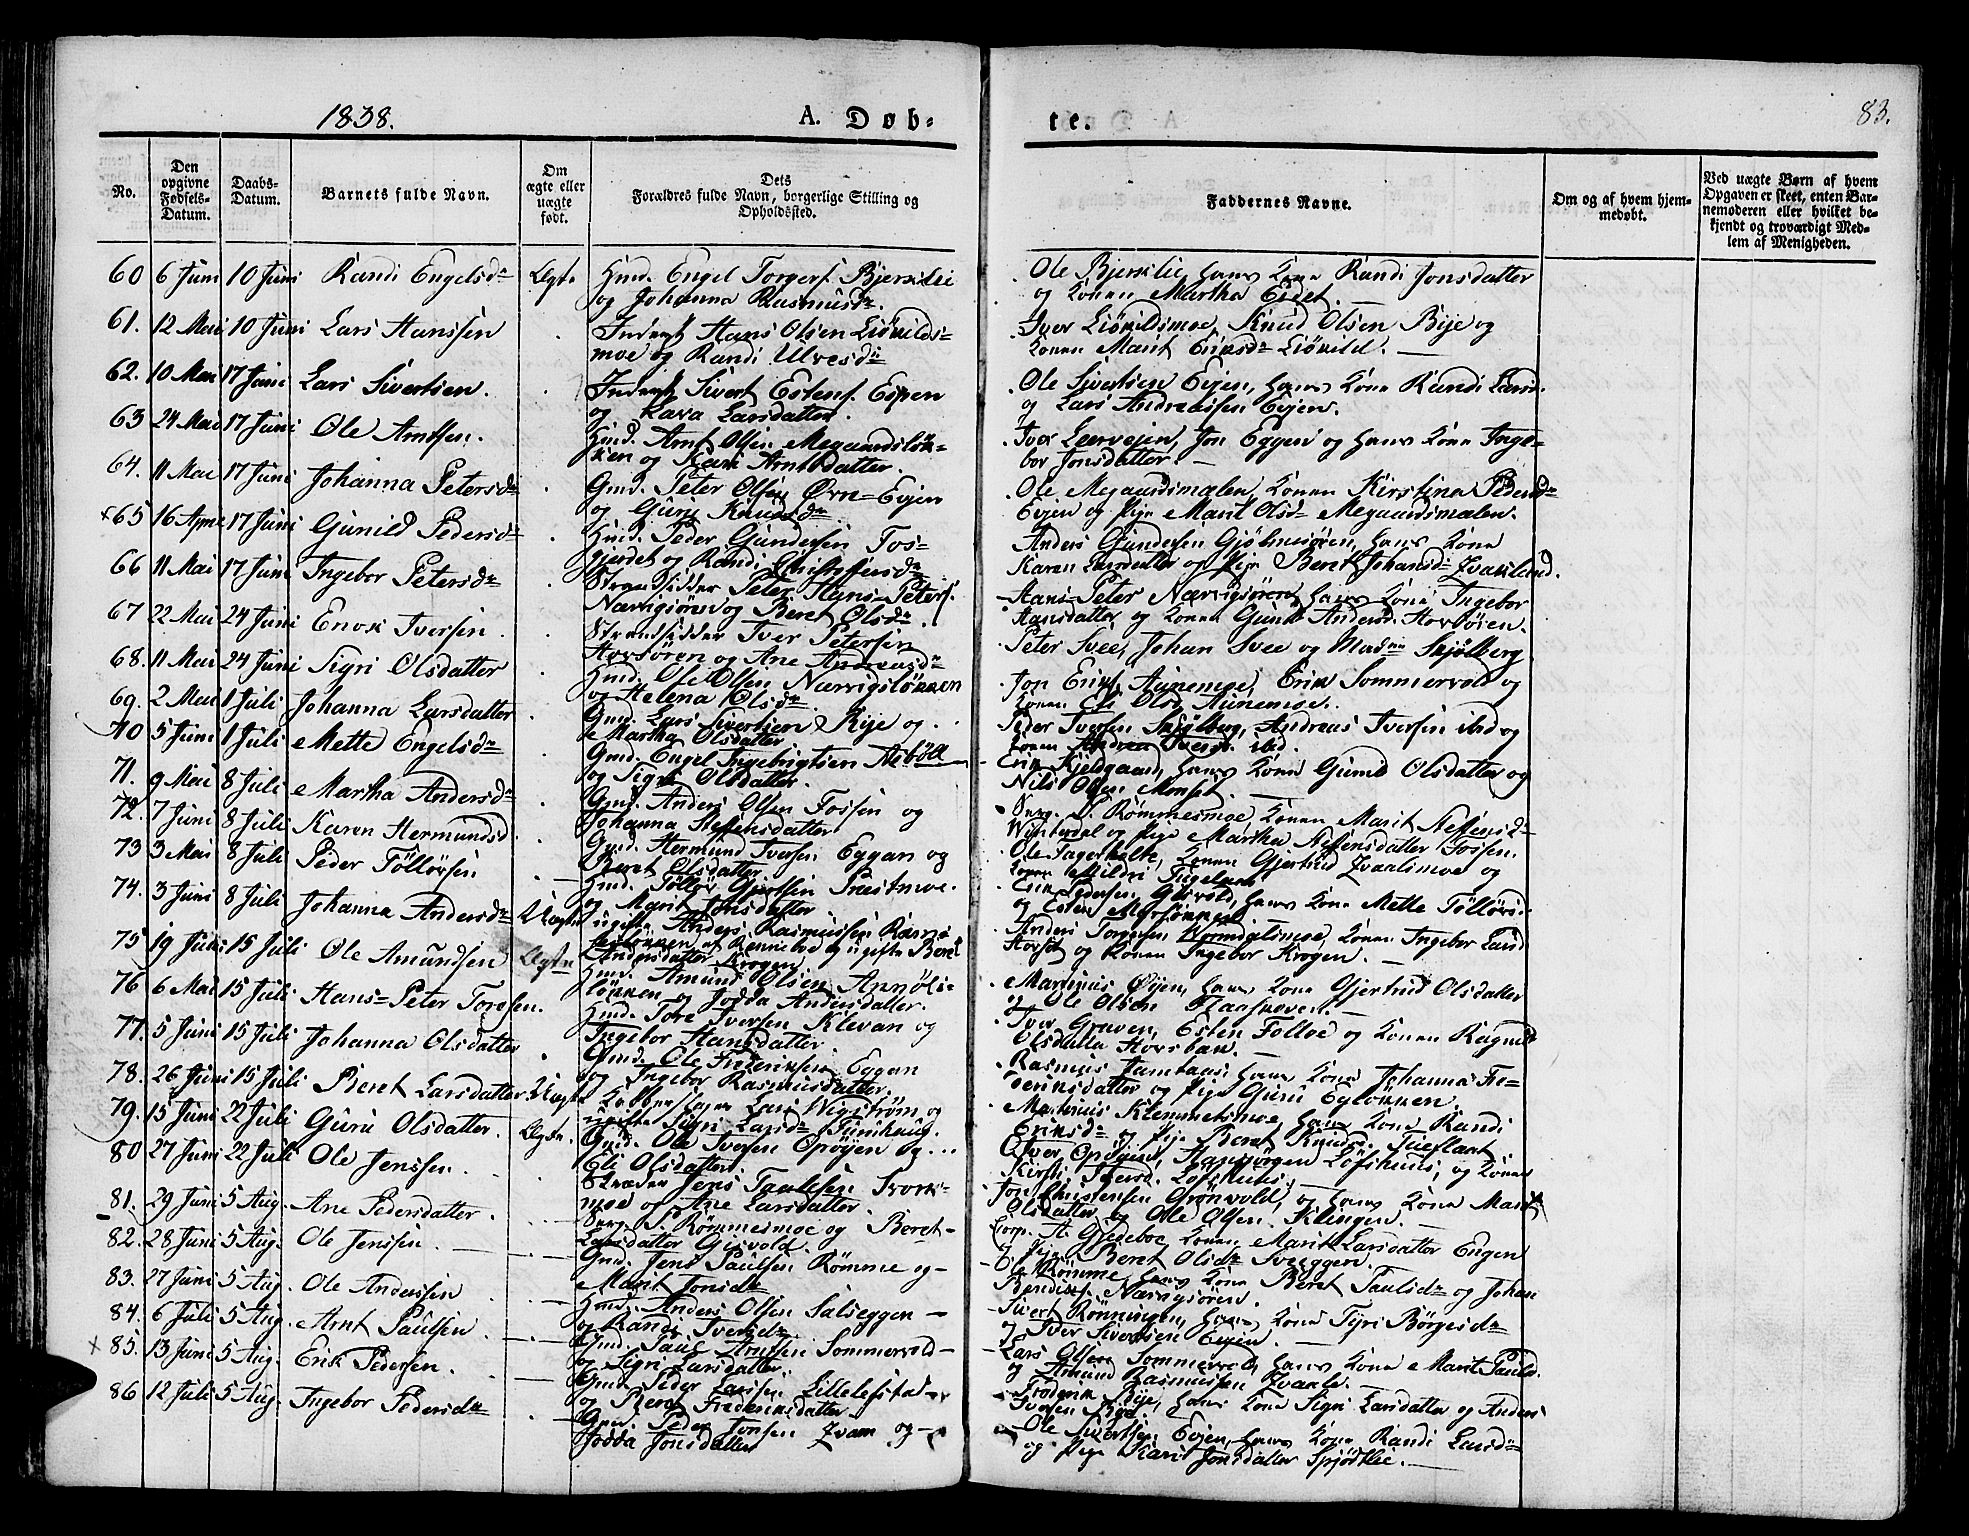 1838.
A. Døb-
te.
83.
No.
Den opgivne Fødsels-Datum.
Daabs-Datum.
Barnets fulde Navn.
Om ægte eller uægte født.
Dets Forældres fulde Navn, borgerlige Stilling og Opholdssted.
Faddernes Navne.
Om og af hvem hjem-medøbt.
Ved uægte Børn af hvem Opgaven er skeet, enten Bar-nemoderen eller hvilket be-kjendt og troværdigt Med-lem af Menigheden.
60 6 Juni 10 Juni Randi Engelsdr Ægte Gmd. Engel Torgersf. Bjerklie
og Johanna Rasmusdr.
Ole Bjerklie, hans Kone Randi Jonsdatter
og Konen Martha Eidet.
61. 12 Mai 10 Juni Lars Hanssen Inderst Hans Olsen Liøkilds-
moe og Randi Ulvesdr
Iver Liøkildsmoe, Knud Olsen Bije og
Konen Marit Eriksdr Liøkild.
62. 10 Mai 17 Juni Lars Sivertsen. Inderst Sivert Estensf. Espen
og Kara Larsdatter.
Ole Sivertsen Evjen, hans Kone Randi Larsd.
og Lars Andreassen Evjen.
63 24 Mai 17 Juni Ole Arntsen. Hmd. Arnt Olsen Megaardsløk-
ken og Kari Arntsdatter.
Iver Leervejen, Jon Eggen og hans Kone Inge-
bor Jonsdatter.
64. 11 Mai 17 Juni Johanna Petersdr Gmd. Peter Olsen Øvre-Evjen
og Guru Knudsdr
Ole Megaardsmælen, Konen Kirstina Pedersdr
Evjen og Pige Marit Olsdr Megaardsmælen.
x 65 16 April 17 Juni Gunild Pedersdr Hmd. Peder Gundersen Fos-
gjerdet og Randi Christophersdr
Anders Gundersen Gjølmesøren, hans Kone
Karen Larsdatter og Pige Beret Johansdr Kvakland.
66 11 Mai 17 Juni Ingebor Petersdr Strandsidder Peter Hans-Petersf.
Nærvigsøren og Beret Olsdr
Hans-Peter Nærvigsøren, hans Kone Ingebor
Hansdatter og Konen Guru Andersd. Hovsøren.
67 22 Mai 24 Juni Enok Iversen Strandsidder Iver Petersen
Hovsøren og Ane Andreasdr
Peter Svee, Johan Svee og Mad. Skjølberg
68. 11 Mai 24 Juni Sigri Olsdatter Hmd. Ole Olsen Nærvigsløkken
og Helena Olsdr
Jon Eriksf. Aunemoe, Erik Sommervold og
Konen Eli Olsd. Aunemoe.
69. 2 Mai 1 Juli Johanna Larsdatter Gmd. Lars Sivertsen Rije og
Martha Olsdatter
Peder Iversen Skjølberg, Andreas Iversen ibd og
Konen Andrea Iversdr ibd.
70 5 Juni 1 Juli Mette Engelsdr Gmd. Engel Ingebrigtsen Aibøe
og Sigri Olsdatter
Erik Kjeldgaard, hans Kone Gunild Olsdatter og
Nils Olsen Monset.
71. 9 Mai 8 Juli Martha Andersdr Gmd. Anders Olsen Fossen og
Johanna Steffensdatter
Serg. P. Rømmesmoe, Konen Marit Steffensdr
Winterdal og Pige Martha Steffensdatter Fossen.
72. 7 Juni 8 Juli Karen Hermundsd. Gmd. Hermund Iversen Eggan og
Beret Olsdatter
Ole Fagerholte, Konen Gjertrud Kvaalsmoe og
Konen Mildri Fugelaas.
73 3 Mai 8 Juli Peder Tølløfsen Hmd. Tølløf Gjertsen Præstmoe
og Marit Jonsdatter
Erik Pedersen Gisvold, hans Kone Mette Tølløfsdr
og Esten Moeløkken.
74. 3 Juni 8 Juli Johanna Andersdr Uægte ugift Anders Rasmussen
og ugifte Beret
Andersdatter Krogen
Anders Torgersen Wormdalsmoe, Konen Ingebor Larsd.
Hovset og Konen Ingebor Krogen.
75 19 Juni 15 Juli Ole Amundsen Ægte Hmd. Amund Olsen
løkken og Jodda Andersdatter.
Martinus Øijen, hans Kone Gjertrud Olsdatter
og Ole Olsen
76 6 Mai 15 Juli Hans-Peter Toresen. Hmd. Tore Iversen Klevan og
Ingebor Hansdatter
Iver Græven, Esten Folloe og Konen Ragnild
Olsdatter Hovsbak.
77. 5 Juni 15 Juli Johanna Olsdatter Gmd. Ole Frederiksen Eggan
og Ingebor Rasmusdatter
Rasmus Jamtaas, hans Kone Johanna Fre-
deriksdatter og Pige Guru Egløkken.
78. 26 Juni 15 Juli Beret Larsdatter Uægte Kobberslager Lars Wigstrøm og
ugifte Sigri Larsdr
Martinus Klemmetsmoe, hans Kone Randi
Eriksdr og Pige Beret Knudsd.
79. 15 Juni 22 Juli Guru Olsdatter. Ægte. Gmd. Ole Iversen Oprøyen og
Eli Olsdatter
Iver Oprøyen, Hansjørgen Løfshuus, og Konen
Kirsti Løfshuus.
80 27 Juni 22 Juli Ole Jenssen Jens Paulsen
moe og Ane Larsdatter.
Jon Christensen Grønvold, og hans Kone Marit
Olsdatter og Ole Olsen Klingen.
81. 29 Juni 5 Aug. Ane Pedersdatter. Serg. P. Rømmesmoe og Beret
Larsdatter Gisvold.
Corp. A. Gjedeboe, Konen Marit Larsdatter Engen
og Pige Beret Olsdr Sveeggen.
82. 28 Juni 5 Aug. Ole Jenssen. Gmd. Jens Paulsen Rømme og
Marit Jonsdr
Ole Rømme, hans Kone Beret Paulsdr og Johan
Bendixf. Nærvigsøren.
83. 27 Juni 5 Aug. Ole Anderssen Hmd. Anders Olsen Salseggen
og Randi Iversdr
Sivert Rønningen, hans Kone Fyri Børgesdr
og Iver Sivertsen Evjen.
84. 6 Juli 5 Aug. Arnt Paulsen Gmd. Paul Arntsen Sommervold
og Sigri Larsdatter
Lars Olsen Sommervold, hans Kone Marit Paulsd.
og Amund Rasmussen Kvaale.
x 85. 13 Juni 5 Aug. Erik Pedersen. Gmd. Peder Larssen Lillelefstad
og Beret Frederiksdatter
Frederik Rije, hans Kone Sigri Larsdatter og Anders
Iversen Rije.
86 12 Juli 5 Aug. Ingebor Pedersdr Gmd. Peder Jonsen Kvam og
Jodda Jonsdatter
Ole Sivertsen Evjen, hans Kone Randi Larsdr
og Pige Karit Jonsdatter Spjøtlie.